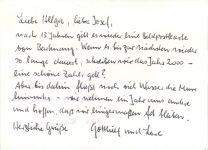 Liebe Helga, lieber Josef,
nach 13 Jahren gibt es wieder eine Bildpostkarte
von Backnang. Wenn es bis zur nächsten wieder
so lange dauert, schreiben wir das Jahr 2000 -
eine schöne Zahl, gell?
Aber bis dahin fließt noch viel Wasser die Murr
hinunter - wir nehmen ein Jahr ums andere
und hoffen, daß wir einigermaßen fit bleiben.
Herzliche Grüße Gottlieb und